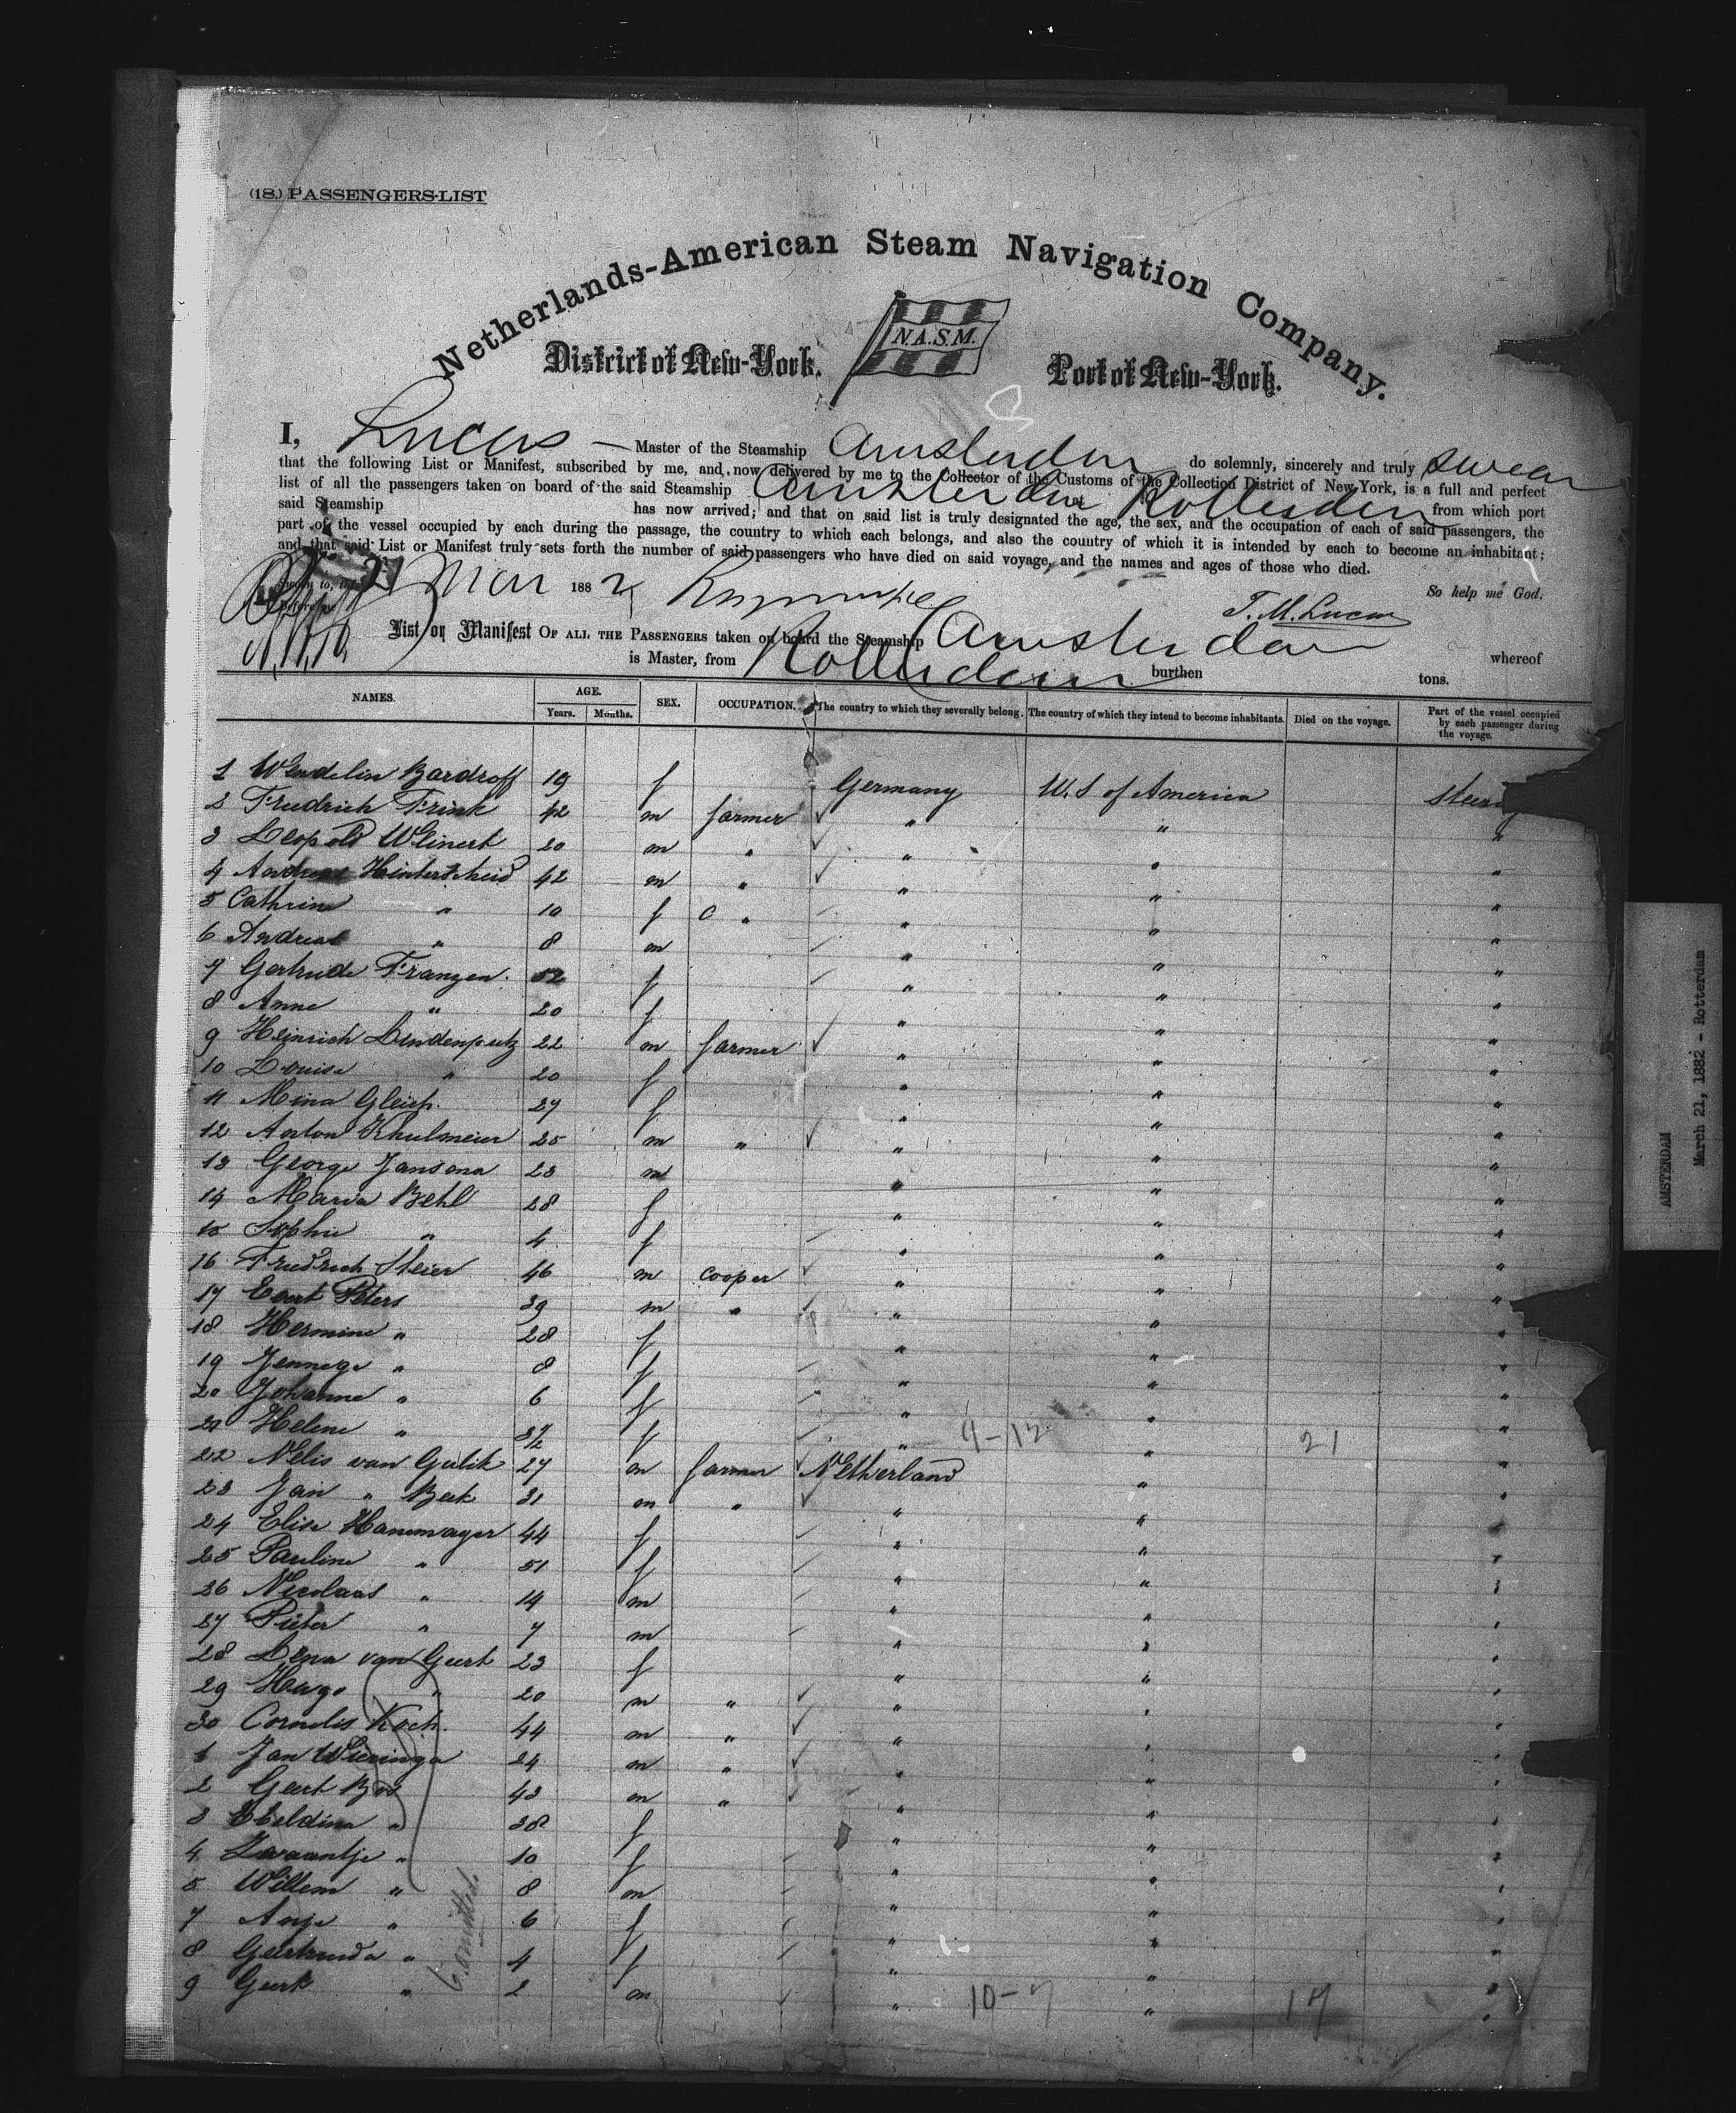 (18.) PASSENGERS-LIST
Netherlands-American Steam Navigation Company.
N.A.S.M.
District of New-York. Port of New-York.
I, Lucas — Master of the Steamship Amsterdam do solemnly, sincerely and truly swear
that the following List or Manifest, subscribed by me, and now delivered by me to the Collector of the Customs of the Collection District of New York, is a full and perfect
list of all the passengers taken on board of the said Steamship Amsterdam at Rotterdam from which port
said Steamship has now arrived; and that on said list is truly designated the age, the sex, and the occupation of each of said passengers, the
part of the vessel occupied by each during the passage, the country to which each belongs, and also the country of which it is intended by each to become an inhabitant;
and that said List or Manifest truly sets forth the number of said passengers who have died on said voyage, and the names and ages of those who died.
21 Mar 1882 So help me God.
T. M. Lucas
List or Manifest OF ALL THE PASSENGERS taken on board the Steamship Amsterdam
is Master, from Rotterdam burthen tons. whereof
NAMES. AGE. Years. Months. SEX. OCCUPATION. The country to which they severally belong. The country of which they intend to become inhabitants. Died on the voyage. Part of the vessel occupied by each passenger during the voyage.
1 Wendelin Bardroff 19 f Germany U.S of America
2 Friedrich Frink 42 m farmer " " "
3 Leopold Weinert 20 m " " " "
4 Andreas Hinterscheid 42 m " " " "
5 Cathrine " 10 f " " " "
6 Andreas " 8 m " " "
7 Gertrude Franzen. 52 f " " "
8 Anne " 20 f " " "
9 Heinrich Lindenputz 22 m farmer " " "
10 Louise " 20 f " " "
11 Mina Gleich. 27 f " " "
12 Anton Khulmeier 25 m " " " "
13 George Jansona 23 m " " "
14 Maria Behl 28 f " " "
15 Sophie " 4 f " " "
16 Friedrich Steier 46 m cooper " " "
17 Evert Peters 39 m " " " "
18 Hermine " 28 f " " "
19 Jennege " 8 f " " "
20 Johanne " 6 f " " "
21 Helene " 3/2 f " 9-12 " 21
22 Nelis van Gulik 27 m farmer Netherland " "
23 Jan " Beek 31 m " " " "
24 Elise Hanemayer 44 f " " "
25 Pauline " 51 f " " "
26 Nicolaas " 14 m " " "
27 Pieter " 7 m " " "
28 Lena van Geert 23 f " " "
29 Hugo " 20 m " " " "
30 Cornelis Koch. 44 m " " " "
1 Jan Wieringa 24 m " " " "
2 Geert Bos 43 m " " " "
3 Ebeldina " 38 f " " "
4 Zwaantje " 10 f " " "
5 Willem " 8 m " " "
7 Anje " 6 f " " "
8 Geertruida " 4 f " " "
9 Geert " 2 m " 10-7 " 17
6 omitted.
AMSTERDAM
March 21, 1882 - Rotterdam